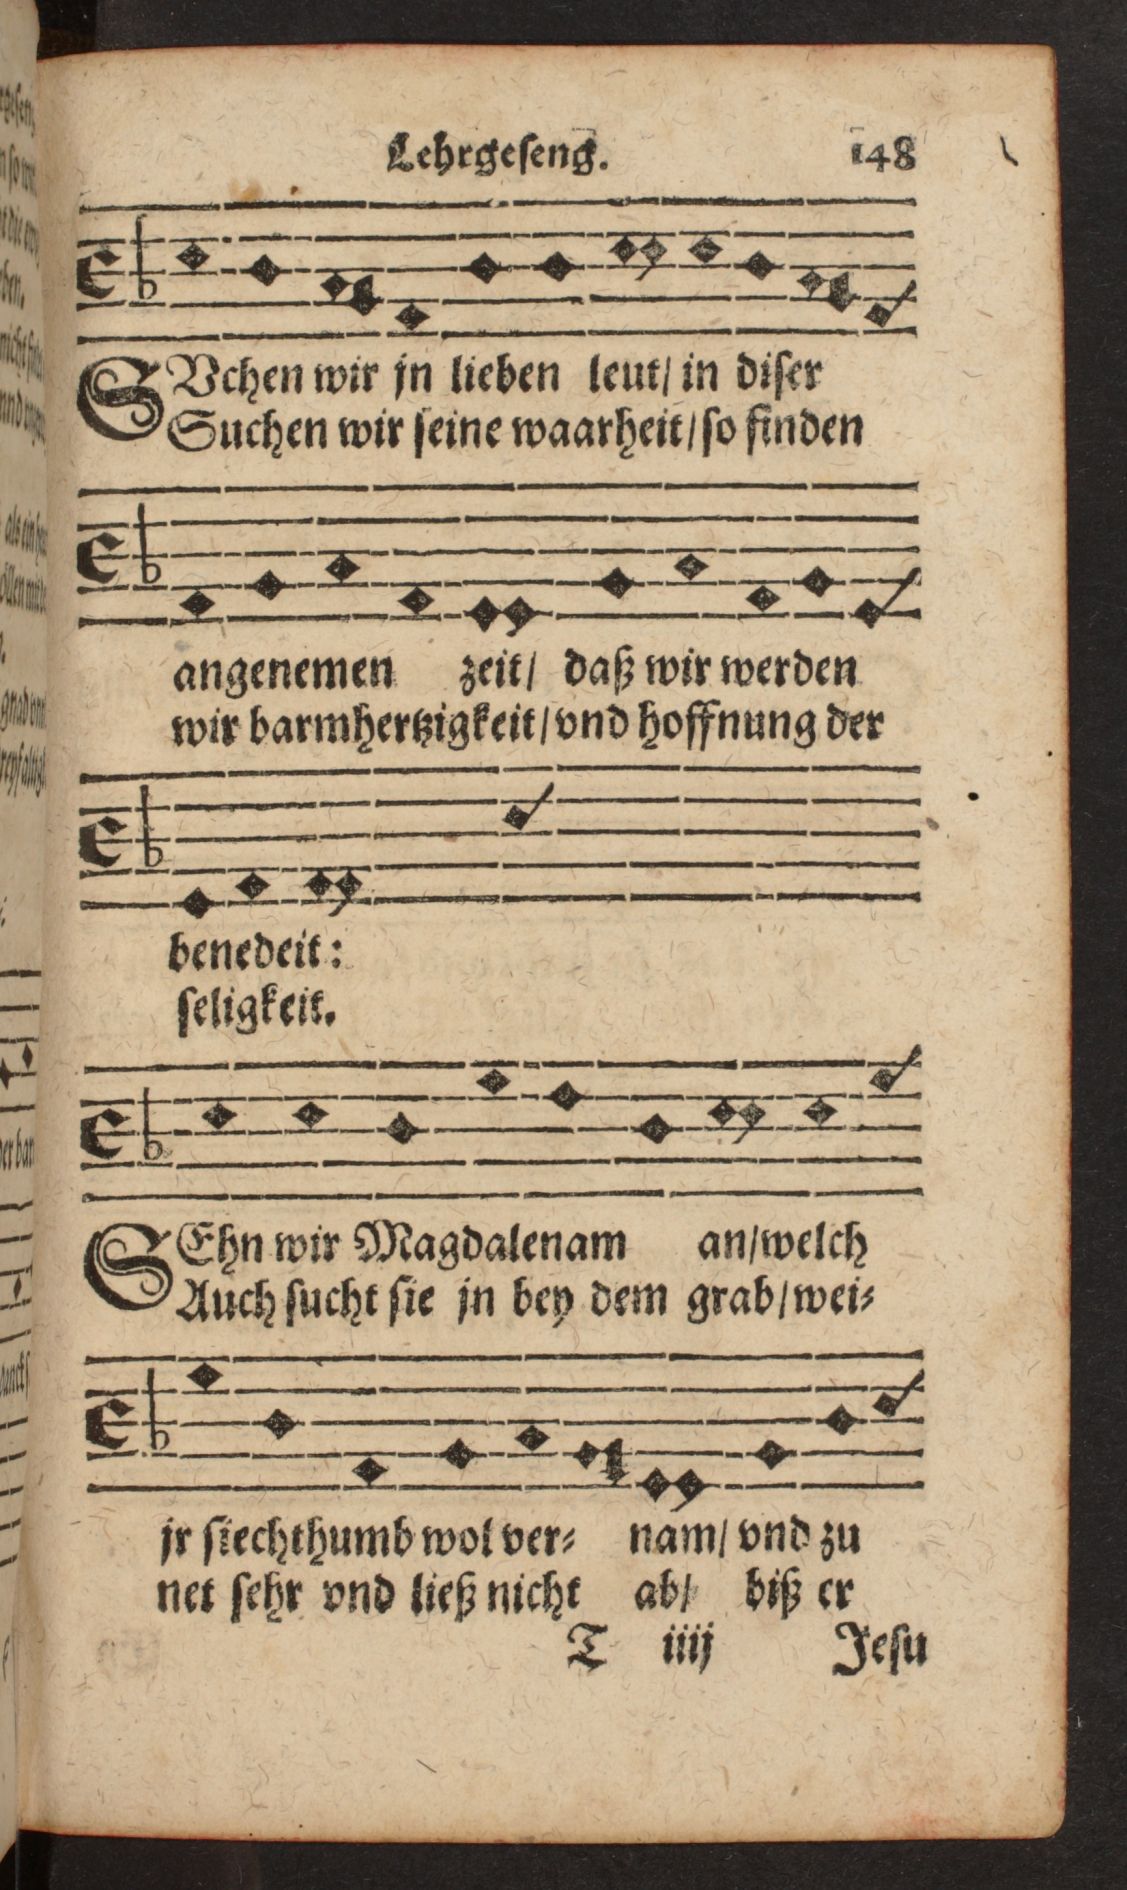 Lehrgeseng. 148
SVchen wir jn lieben leut/ in diser
Suchen wir seine waarheit/ so finden
angenemen zeit/ daß wir werden
wir barmhertzigkeit/ vnd hoffnung der
benedeit:
seligkeit.
SEhn wir Magdalenam an/ welch
Auch sucht sie jn bey dem grab/ wei⸗
jr siechthumb wol ver⸗ nam/ vnd zu
net sehr vnd ließ nicht ab/ biß er
T iiij Jesu